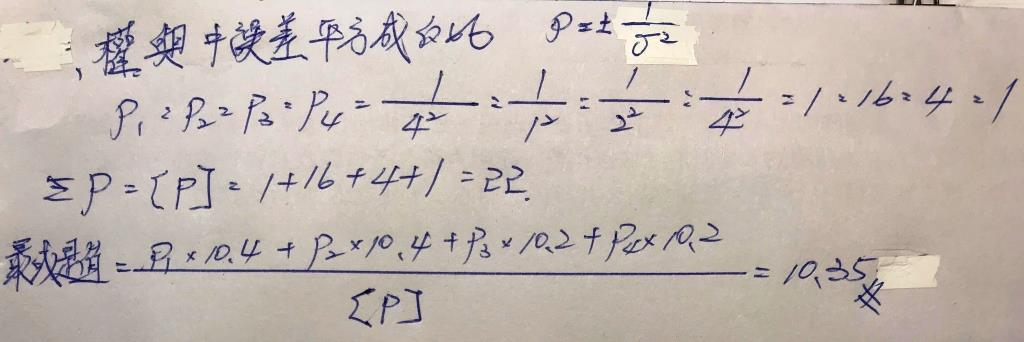 權與中誤差平方成反比 P=±1/σ²
P₁:P₂:P₃:P₄=1/4²:1/1²:1/2²:1/4²=1:16:4:1
ΣP=[P]=1+16+4+1=22.
最或是值=P₁×10.4+P₂×10.4+P₃×10.2+P₄×10.2/[P]=10.35